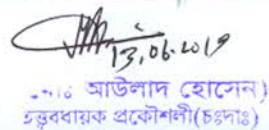 13.06.2019
আউলাদ হোসেন)
তত্ত্বাবধায়ক প্রকৌশলী(চঃদাঃ)